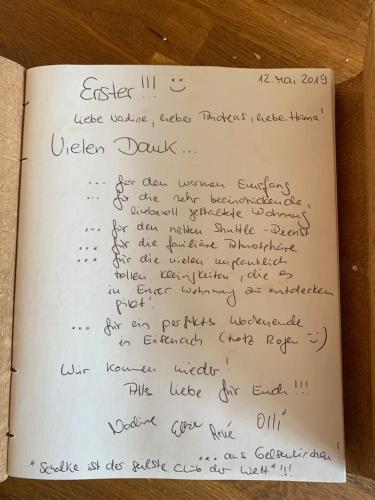 Erster!!! :-)
12. Mai 2019
Liebe Nadine, lieber Andreas, liebe Hanna!
Vielen Dank...
... für den warmen Empfang
... für die sehr beeindruckende,
liebevoll gestaltete Wohnung
... für den netten Shuttle-Dienst
... für die familiäre Atmosphäre
... für die vielen unglaublich
tollen Kleinigkeiten, die es
in Eurer Wohnung zu entdecken
gibt!
... für ein perfektes Wochenende
in Eisenach (trotz Regen :-))
Wir kommen wieder!
Alles liebe für Euch!!!
Nadine René Olli
... aus Gelsenkirchen!
"Schalke ist der geilste Club der Welt"!!!